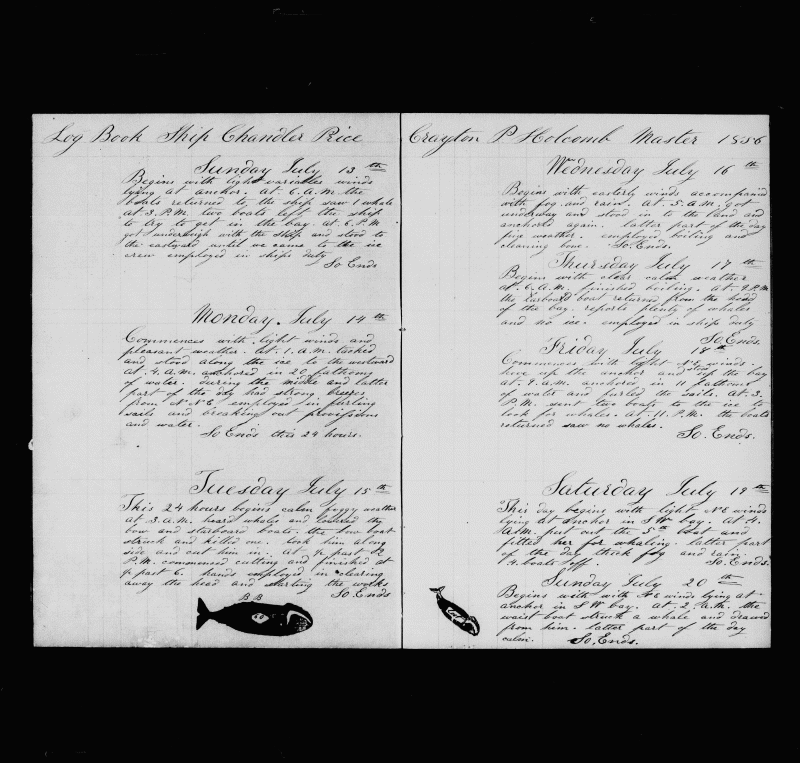 Log Book Ship Chandler Price
Sunday July 13th
Begins with light variables winds
lying at anchor. At 6. A.M. the
boats returned to the ship saw 1 whale
at 3. P.M. two boats left the ship
to try to get in the bay. At 6. P.M
got underweigh with the ship and stood to
the eastward until we came to the ice
crew employed in ships duty
So Ends
Monday. July 14th
Commences with light winds and
pleasant weather. At. 1. A.M. tacked
and stood along the ice to the westward
At. 4. A.M anchored in 20 fathoms
of water. during the middle and latter
part of the day had strong breezes
from N.N.E. employed in furling
sails and breaking out provissions
and water.
So Ends this 24 hours.
Tuesday July 15th
This 24 hours begins calm foggy weather
at 3. A.M. heard whales and lowered the
bow and starboard boats. the bow boat
struck and killed one. took him along
side and cut him in. at ½ past 12
P.M. commenced cutting and finished at
½ past 6. hands employed in clearing
away the head and starting the works
So Ends
B B
60
Crayton P Holcomb Master 1856
Wednesday July 16th
Begins with easterly winds accompanied
with fog and rain. At. 5. A.M. got
underway and stood in to the land and
anchored again. latter part of the day
fine weather. employed boiling and
cleaning bone. So. Ends.
Thursday July 17th
Begins with clear calm weather
at. 6. A.M. finished boiling. at. 9. P.M
the larboard boat returned from the head
of the bay. reports plenty of whales
and no ice. employed in ships duty
So. Ends.
Friday July 18th
Commences with light N.E. winds.
hove up the anchor and stood up the bay
at. 9. A.M. anchored in 11 fathoms
of water and furled the sails. At. 3.
P.M. sent two boats to the ice to
look for whales. At. 11. P.M. the boats
returned saw no whales.
So. Ends.
Saturday July 19th
This day begins with light N.E winds
lying at anchor in S W bay. at 4.
A.M. put out the 5th boat and
fitted her for whaling. latter part
of the day thick fog and rain.
4. boats off. So. Ends.
Sunday July 20th
Begins with with N E winds lying at
anchor in S W bay. at. 2. A.M. the
waist boat struck a whale and drawed
from him. latter part of the day
calm. So. Ends.